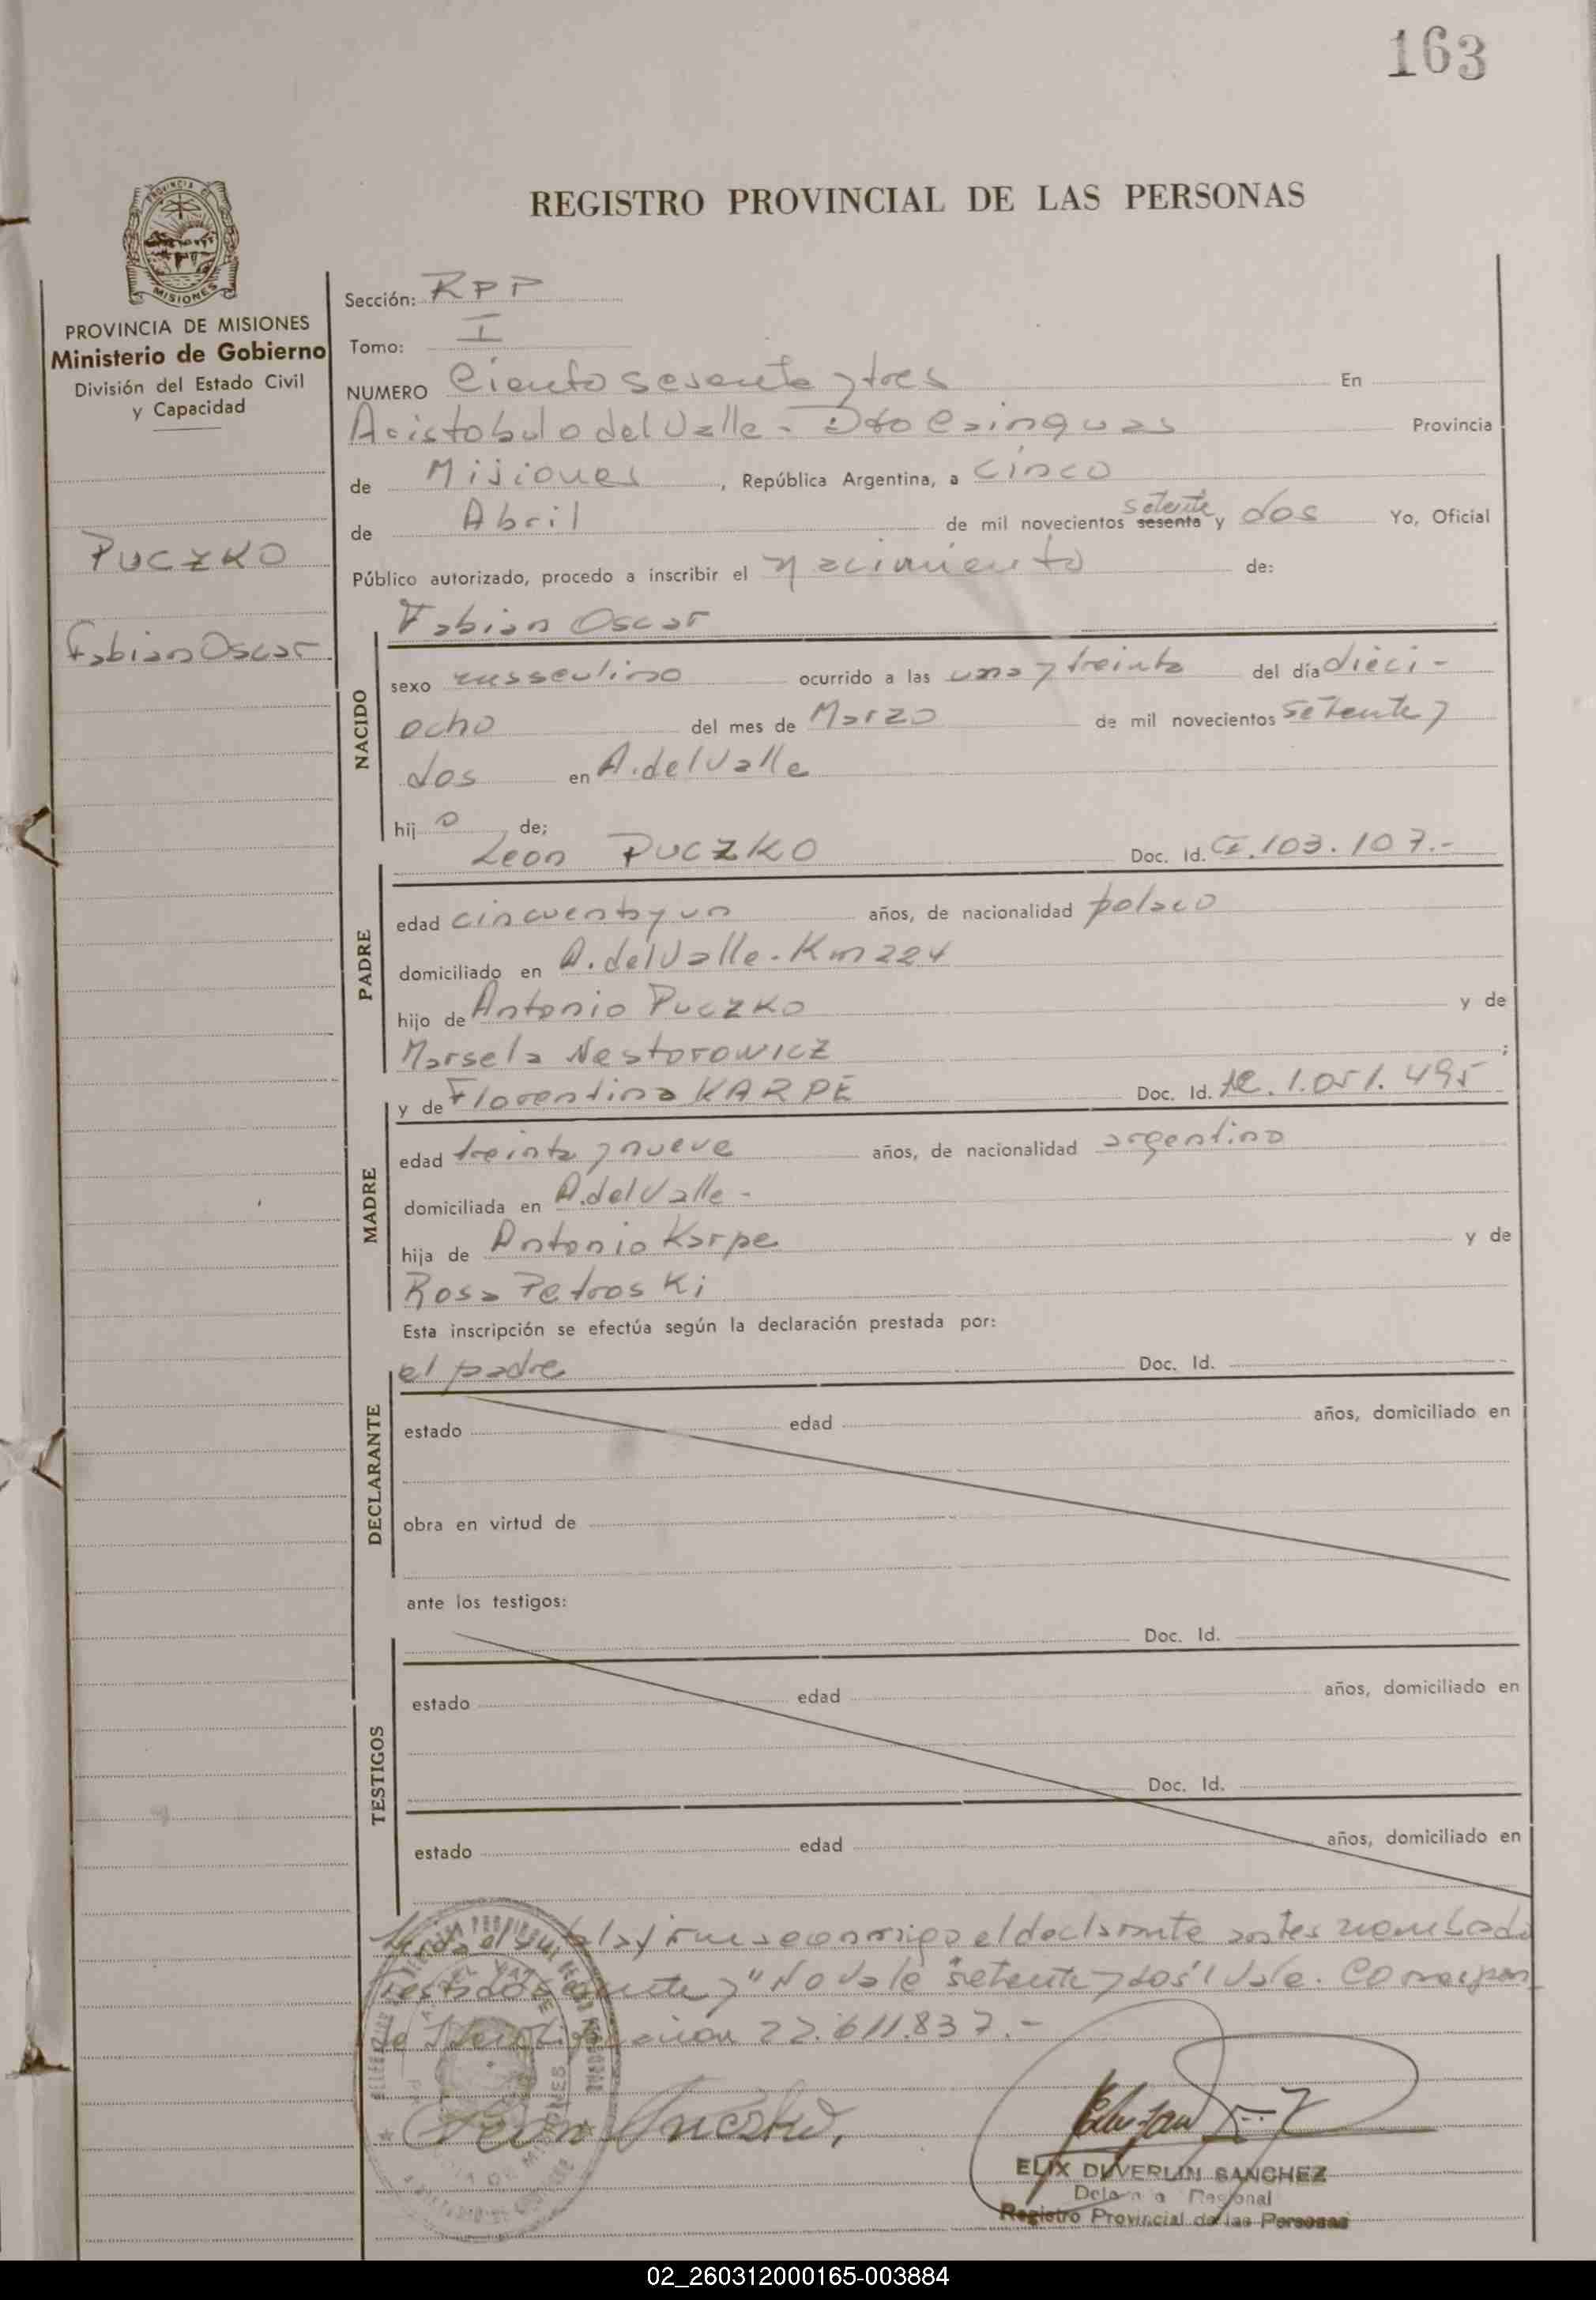 163
REGISTRO PROVINCIAL DE LAS PERSONAS
PROVINCIA DE MISIONES
Ministerio de Gobierno
División del Estado Civil
y Capacidad
PUCZKO
Fabian Oscar
Sección: RPP
Tomo: I
NUMERO Ciento sesenta y tres En
Aristobulo del Valle - Dto Cainguas Provincia
de Misiones, República Argentina, a cinco
setenta
de Abril de mil novecientos sesenta y dos Yo, Oficial
Público autorizado, procedo a inscribir el Nacimiento de:
Fabian Oscar
NACIDO
sexo masculino ocurrido a las una y treinta del día dieci-
ocho del mes de Marzo de mil novecientos setenta y
dos en A. del Valle
hij o de;
Leon PUCZKO Doc. Id. CI. 103.107.-
PADRE
edad cincuenta y un años, de nacionalidad polaco
domiciliado en A. del Valle - Km 224
hijo de Antonio Puczko y de
Marsela Nestorowicz ;
y de Florentina KARPE Doc. Id. 1.051.495
MADRE
edad treinta y nueve años, de nacionalidad argentina
domiciliada en A. del Valle -
hija de Antonio Karpe y de
Rosa Petroski
Esta inscripción se efectúa según la declaración prestada por:
el padre Doc. Id.
DECLARANTE
estado edad años, domiciliado en
obra en virtud de
ante los testigos:
Doc. Id.
TESTIGOS
estado edad años, domiciliado en
Doc. Id.
estado edad años, domiciliado en
Leida el acta la firma conmigo el declarante antes nombrado
Testado "sesenta y" No vale "setenta y dos" Vale. Correspon
de Identificación 22.611.837.-
Leon Puczko
ELIX DUVERLIN SANCHEZ
Regional
Registro Provincial de las Personas
02_260312000165-003884